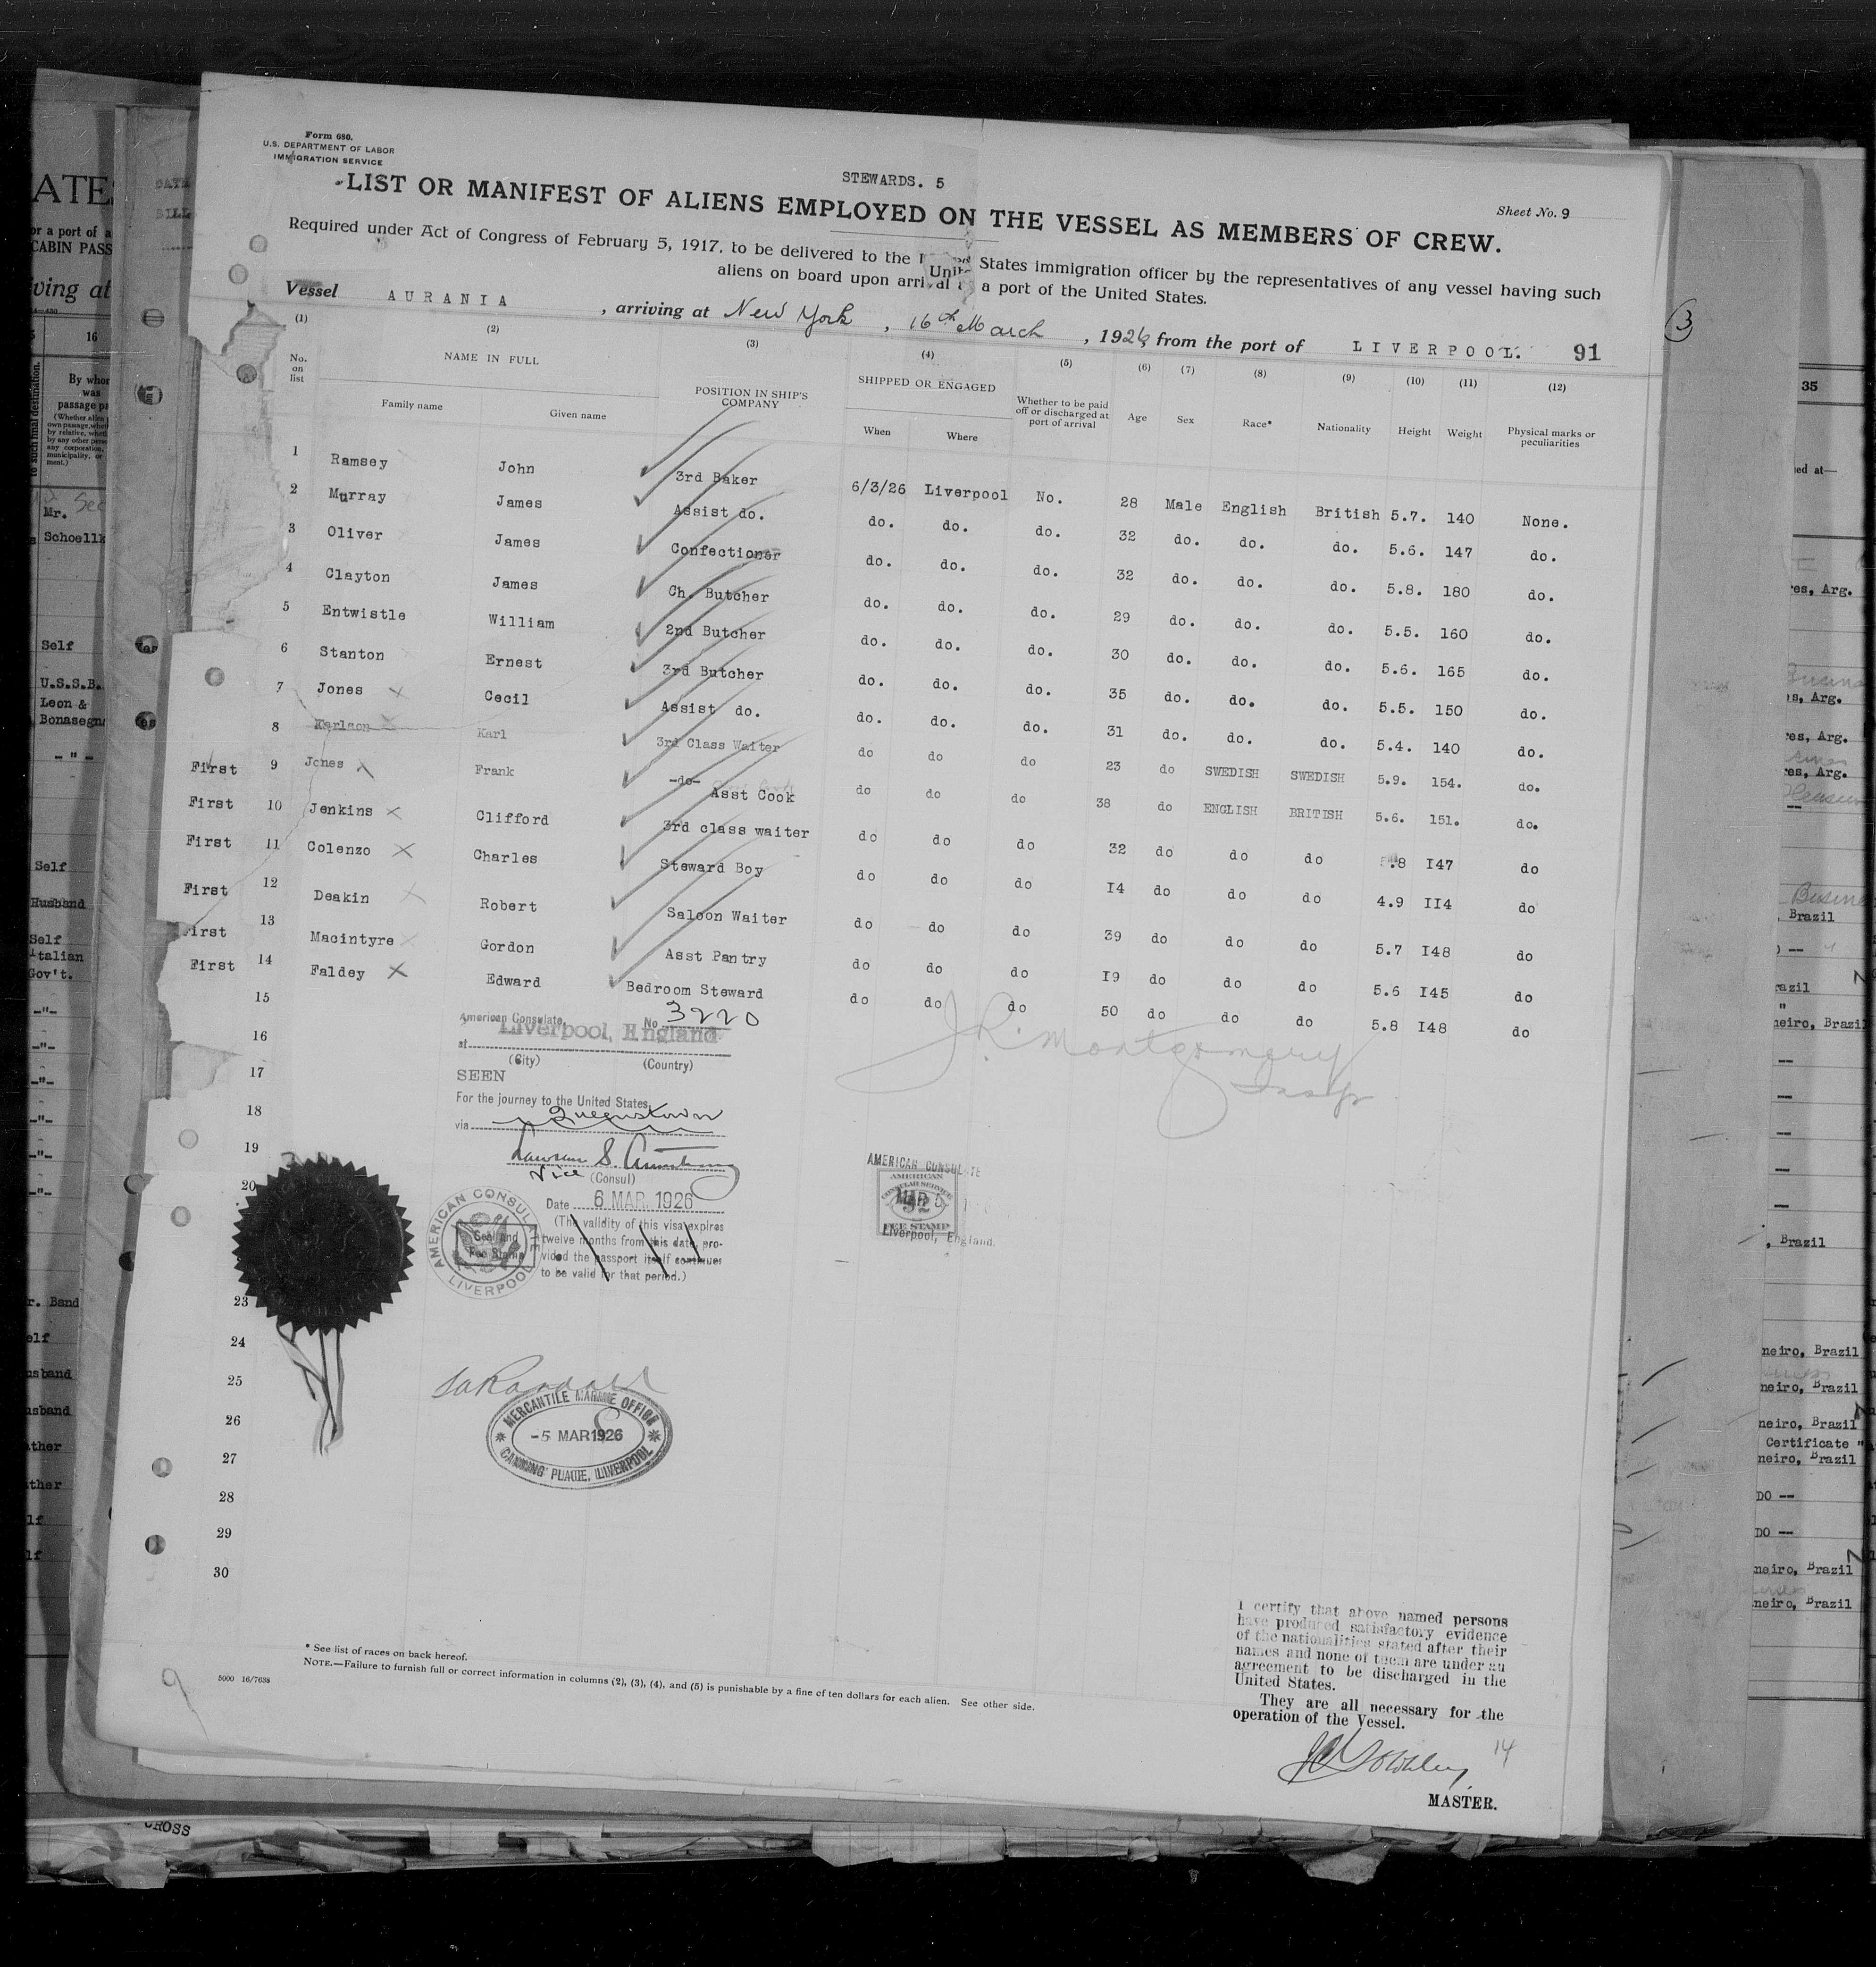 Form 680.
U.S. DEPARTMENT OF LABOR
IMMIGRATION SERVICE
STEWARDS. 5
LIST OR MANIFEST OF ALIENS EMPLOYED ON THE VESSEL AS MEMBERS OF CREW.
Sheet No. 9
Required under Act of Congress of February 5, 1917, to be delivered to the United States immigration officer by the representatives of any vessel having such
aliens on board upon arrival at a port of the United States.
Vessel AURANIA, arriving at New York, 16th March, 1926 from the port of LIVERPOOL. 91
(1) (2) (3) (4) (5) (6) (7) (8) (9) (10) (11) (12)
No. on list NAME IN FULL POSITION IN SHIP'S COMPANY SHIPPED OR ENGAGED Whether to be paid off or discharged at port of arrival Age Sex Race* Nationality Height Weight Physical marks or peculiarities
Family name Given name When Where
1 Ramsey John 3rd Baker 6/3/26 Liverpool No. 28 Male English British 5.7. 140 None.
2 Murray James Assist do. do. do. do. 32 do. do. do. 5.6. 147 do.
3 Oliver James Confectioner do. do. do. 32 do. do. do. 5.8. 180 do.
4 Clayton James Ch. Butcher do. do. do. 29 do. do. do. 5.5. 160 do.
5 Entwistle William 2nd Butcher do. do. do. 30 do. do. do. 5.6. 165 do.
6 Stanton Ernest 3rd Butcher do. do. do. 35 do. do. do. 5.5. 150 do.
7 Jones Cecil Assist do. do. do. do. 31 do. do. do. 5.4. 140 do.
8 Karlson Karl 3rd Class Waiter do do do 23 do SWEDISH SWEDISH 5.9. 154. do.
First 9 Jones Frank -do- Asst Cook do do do 38 do ENGLISH BRITISH 5.6. 151. do.
First 10 Jenkins Clifford 3rd class waiter do do do 32 do do do .8 I47 do
First 11 Colenzo Charles Steward Boy do do do I4 do do do 4.9 II4 do
First 12 Deakin Robert Saloon Waiter do do do 39 do do do 5.7 I48 do
First 13 Macintyre Gordon Asst Pantry do do do I9 do do do 5.6 I45 do
First 14 Faldey Edward Bedroom Steward do do do 50 do do do 5.8 I48 do
15
16
17
18
19
20
23
24
25
26
27
28
29
30
American Consulate No. 3220
at Liverpool, England
(City) (Country)
SEEN
For the journey to the United States,
via Queenstown
Vice (Consul)
Date 6 MAR. 1926
(The validity of this visa expires
twelve months from this date, pro-
vided the passport itself continues
to be valid for that period.)
AMERICAN CONSULATE
LIVERPOOL
Seal and
Fee Stamp
J R. Montgomery
Insp
AMERICAN CONSULATE
AMERICAN
CONSULAR SERVICE
MAR 5
FEE STAMP
Liverpool, England.
MERCANTILE MARINE OFFICE
-5 MAR 1926
CANNING PLACE, LIVERPOOL
I certify that above named persons
have produced satisfactory evidence
of the nationalities stated after their
names and none of them are under an
agreement to be discharged in the
United States.
They are all necessary for the
operation of the Vessel.
14
MASTER.
* See list of races on back hereof.
NOTE.—Failure to furnish full or correct information in columns (2), (3), (4), and (5) is punishable by a fine of ten dollars for each alien. See other side.
5000 16/7638
9
3
16
By whom
was
passage
Mr.
Self
U.S.S.B.
Leon &
Self
Husband
Self
Italian
Gov't.
35
Brazil
Brazil
Certificate
CROSS